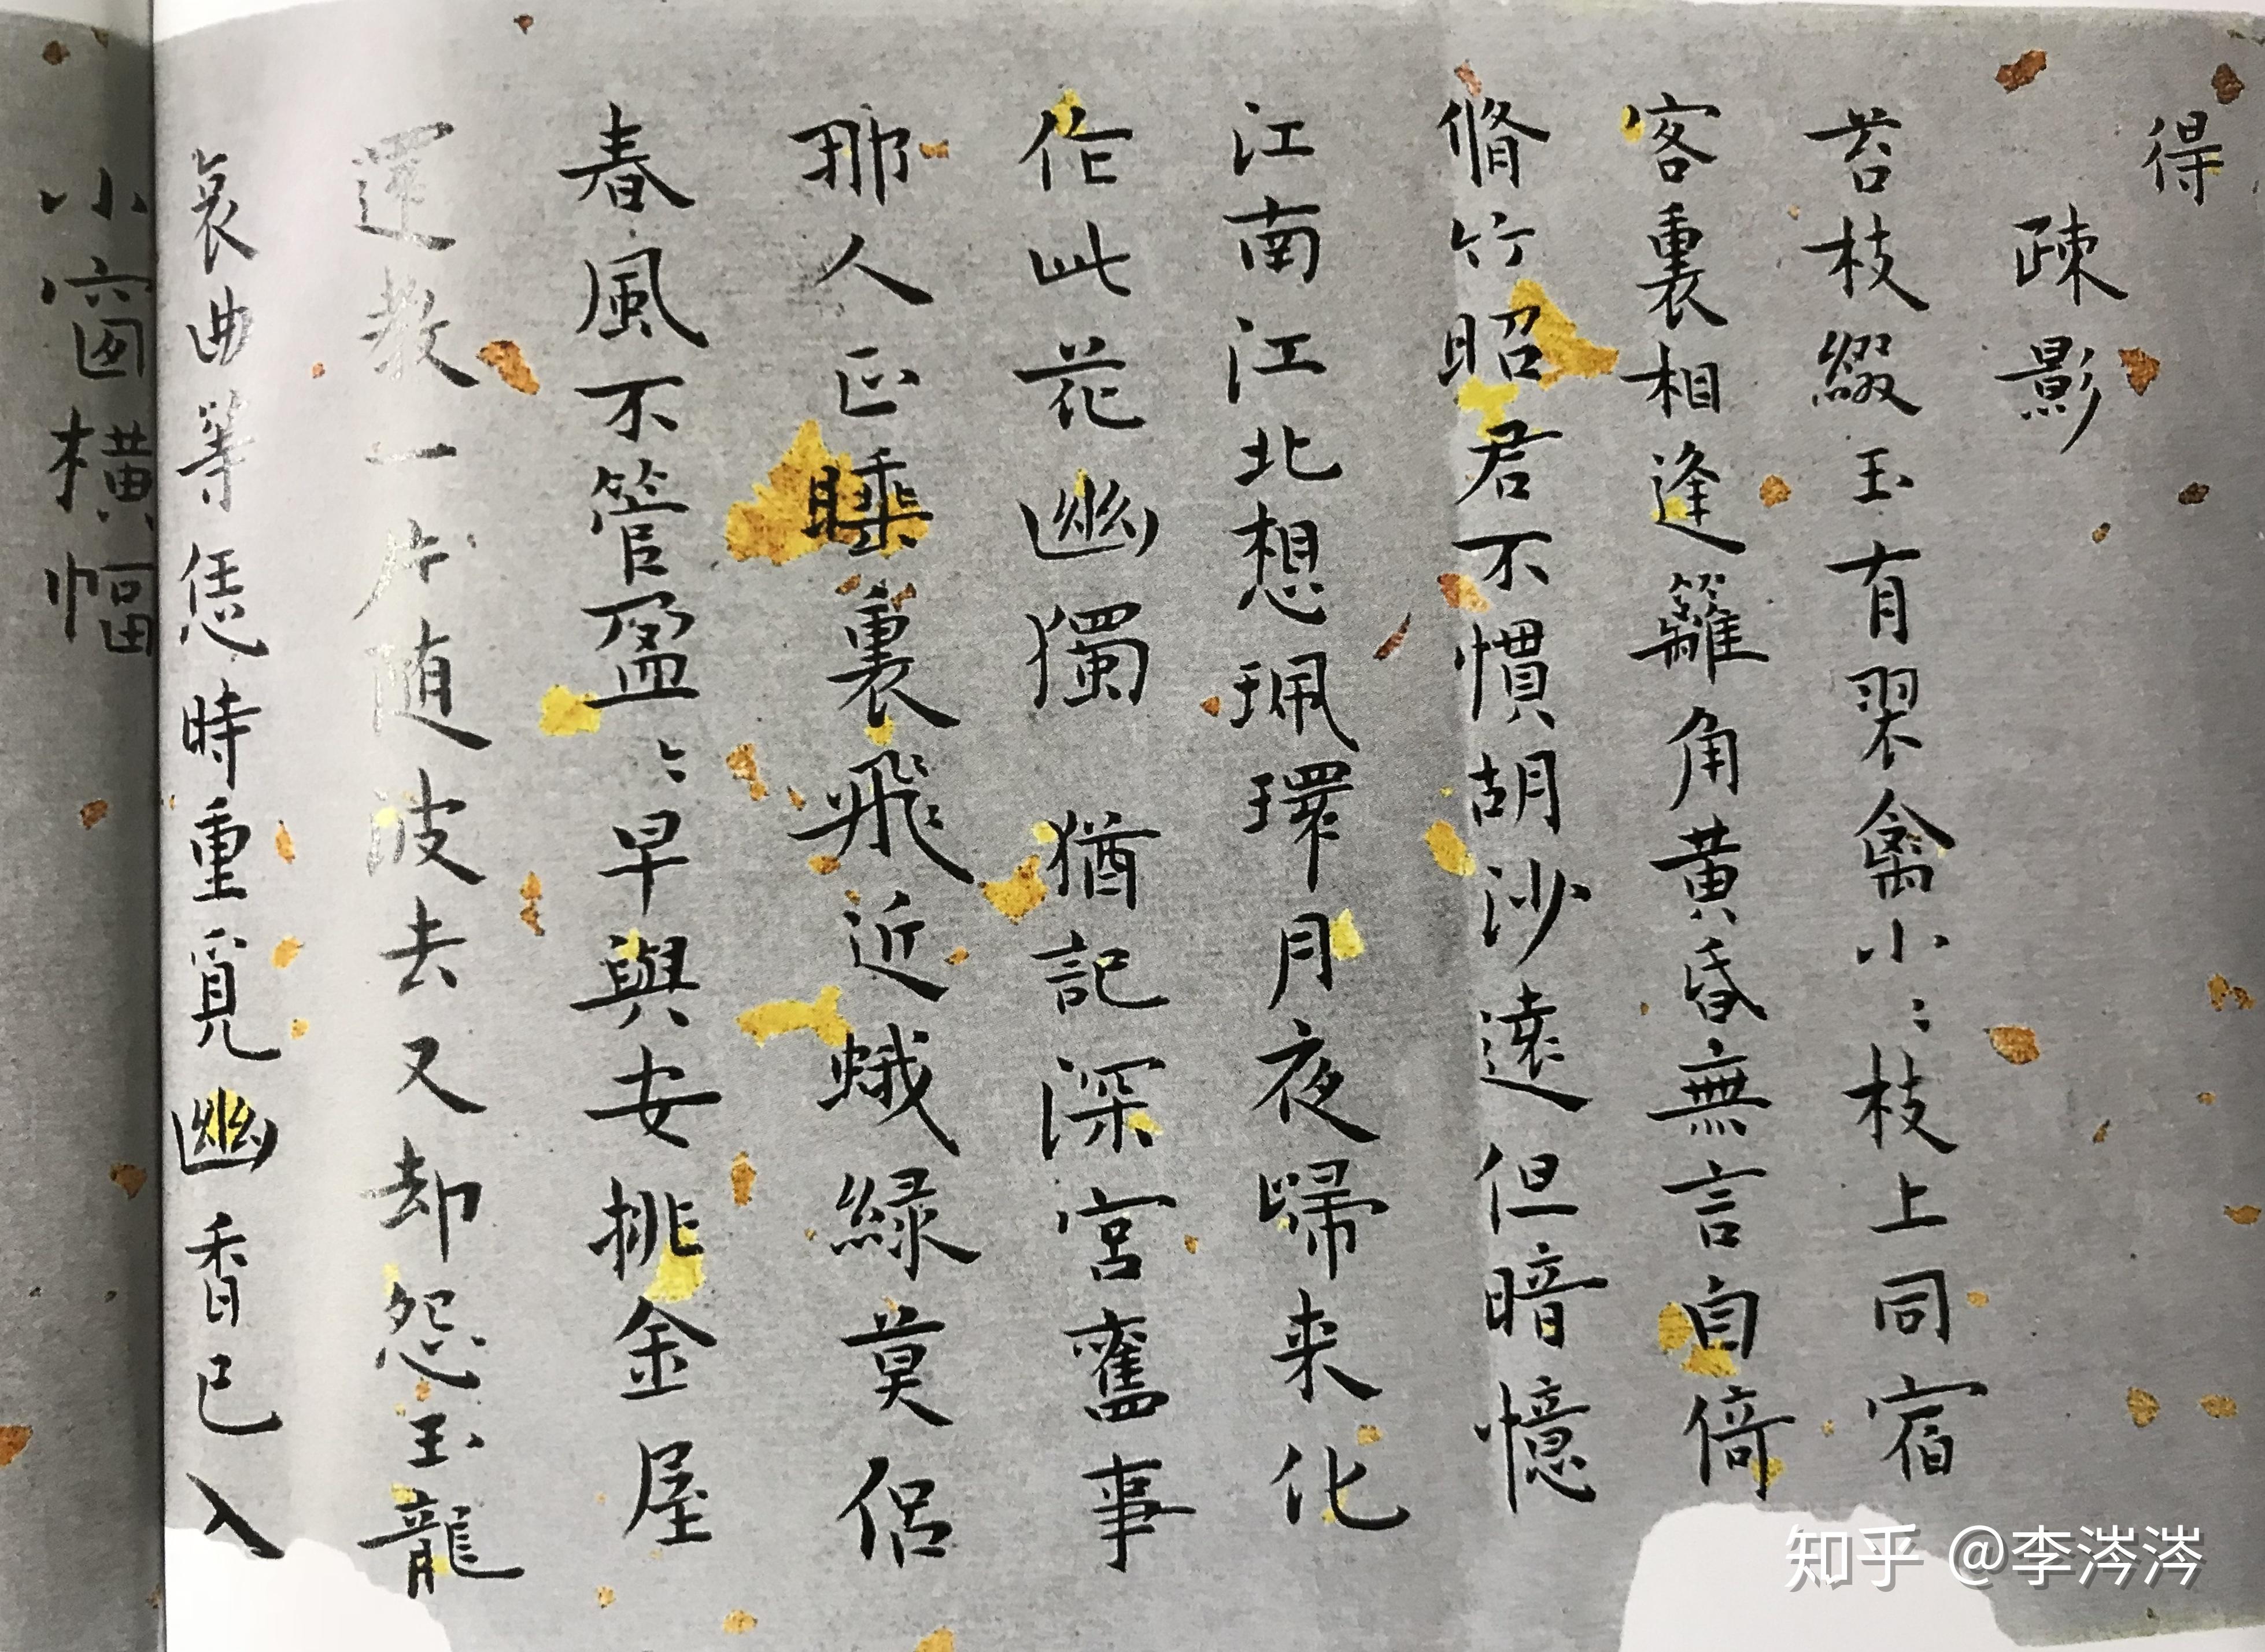 得
疎影
苔枝綴玉有翠禽小〻枝上同宿
客裏相逢籬角黄昏無言自倚
脩竹昭君不慣胡沙遠但暗憶
江南江北想珮環月夜歸来化
作此花幽獨 猶記深宮舊事
那人正睡裏飛近蛾緑莫侣
春風不管盈〻早與安排金屋
還教一片随波去又却怨玉龍
哀曲等恁時重覓幽香已入
小窗横幅
知乎 @李涔涔